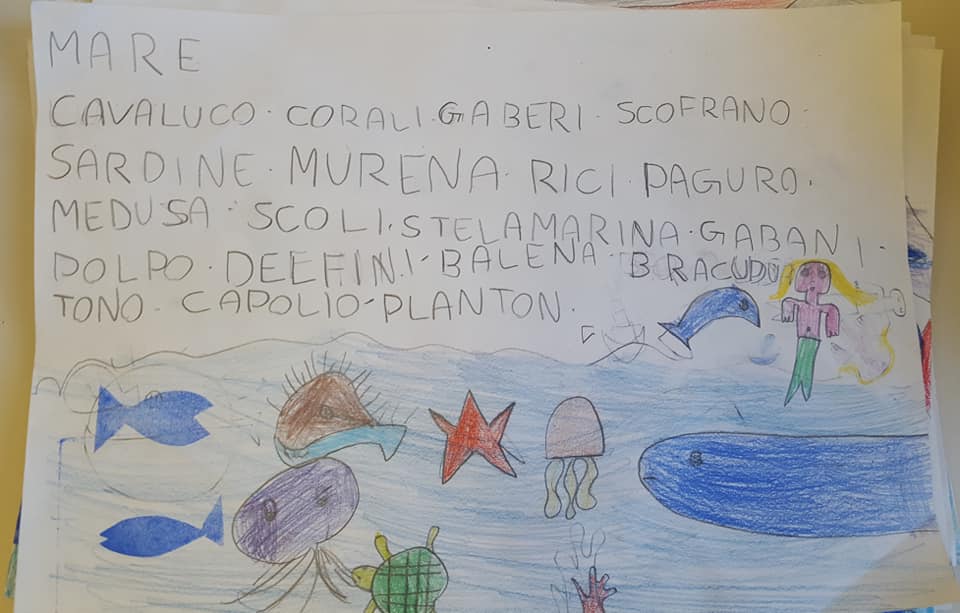 MARE
CAVALUCO · CORALI · GABERI · SCOFRANO ·
SARDINE · MURENA · RICI · PAGURO ·
MEDUSA · SCOLI · STELAMARINA · GABANI ·
POLPO · DELFINI · BALENA · BRACUDU
TONO · CAPOLIO - PLANTON ·